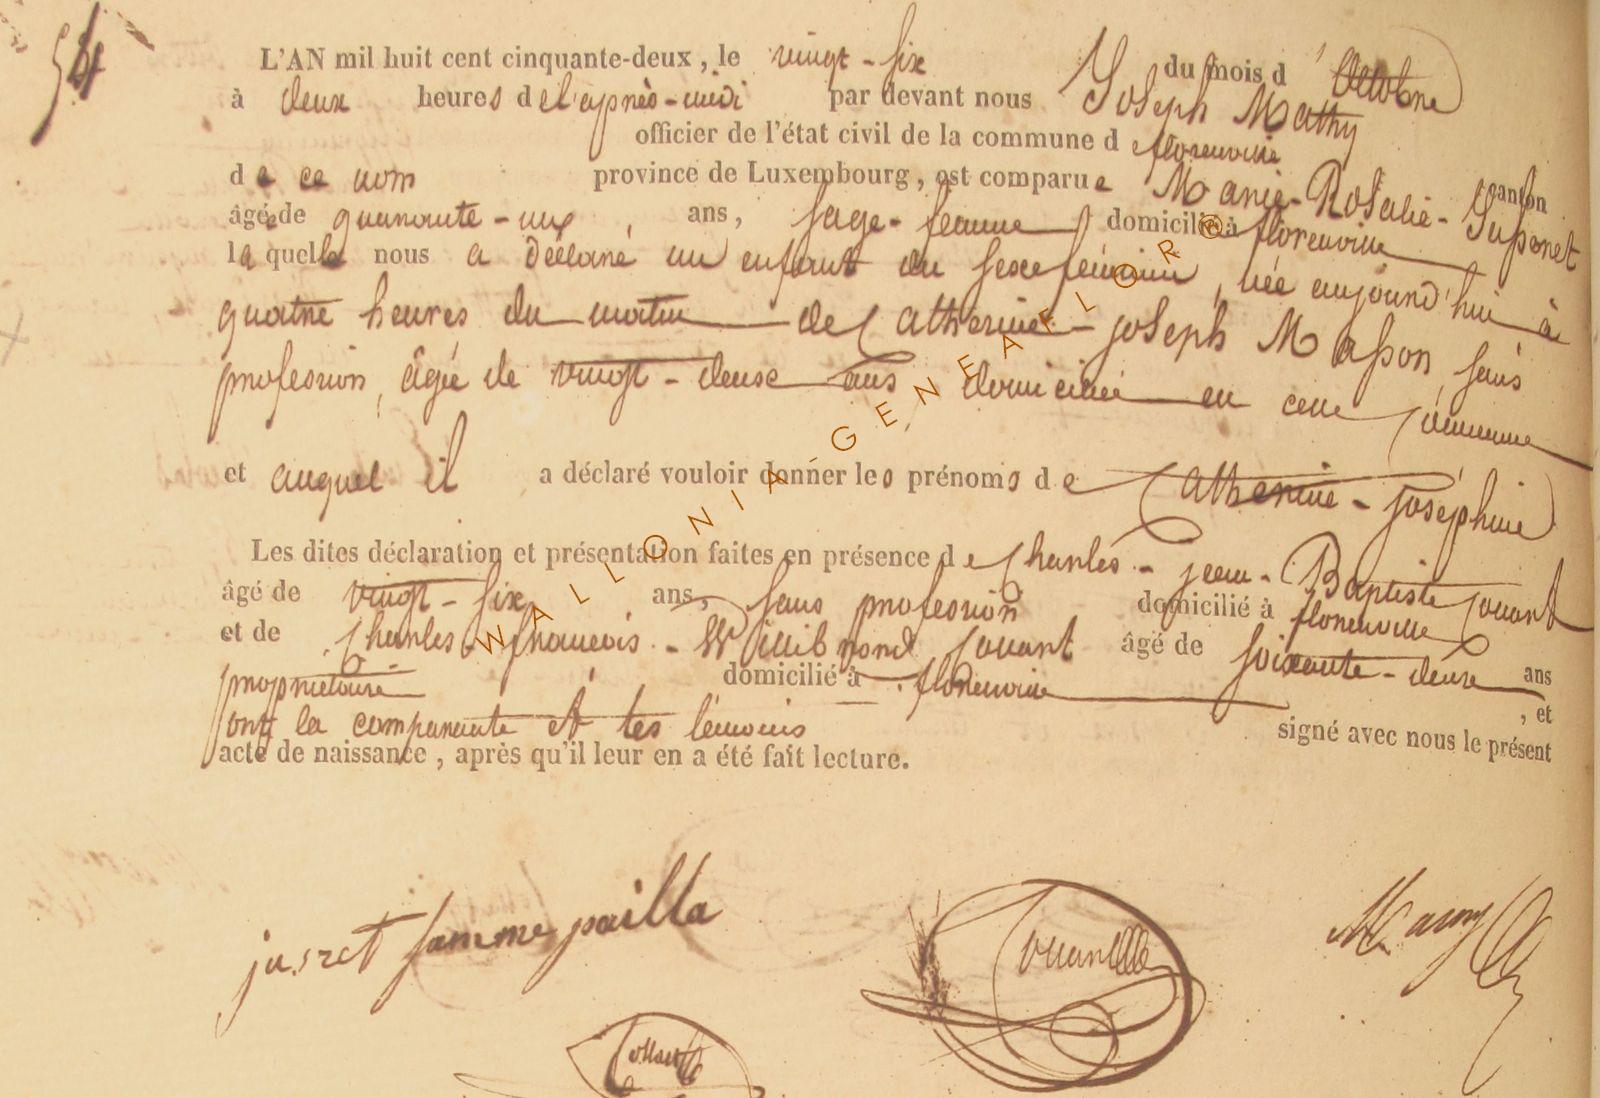 54
L'AN mil huit cent cinquante-deux, le vingt-six du mois d'Octobre
à deux heures de l'après-midi par devant nous Joseph Mathy
officier de l'état civil de la commune de florenville canton
de ce nom province de Luxembourg, est comparue Marie-Rosalie-
âgée de quarante- ans, sage-femme domiciliée à florenville
laquelle nous a déclaré un enfant du sexe féminin, née aujourd'hui à
quatre heures du matin de Catherine-joseph Masson, sans
profession, âgée de vingt-deux ans domiciliée en cette Commune
et auquel il a déclaré vouloir donner les prénoms de Catherine-joséphine
Les dites déclaration et présentation faites en présence de Charles-jean-Baptiste Jouant
âgé de vingt-six ans, sans profession domicilié à florenville
et de Charles-françois-Willibrord Jouant âgé de soixante-deux ans
propriétaire domicilié à florenville, et
ont la comparante et les témoins signé avec nous le présent
acte de naissance, après qu'il leur en a été fait lecture.
WALLONIA-GENEAFLOR®